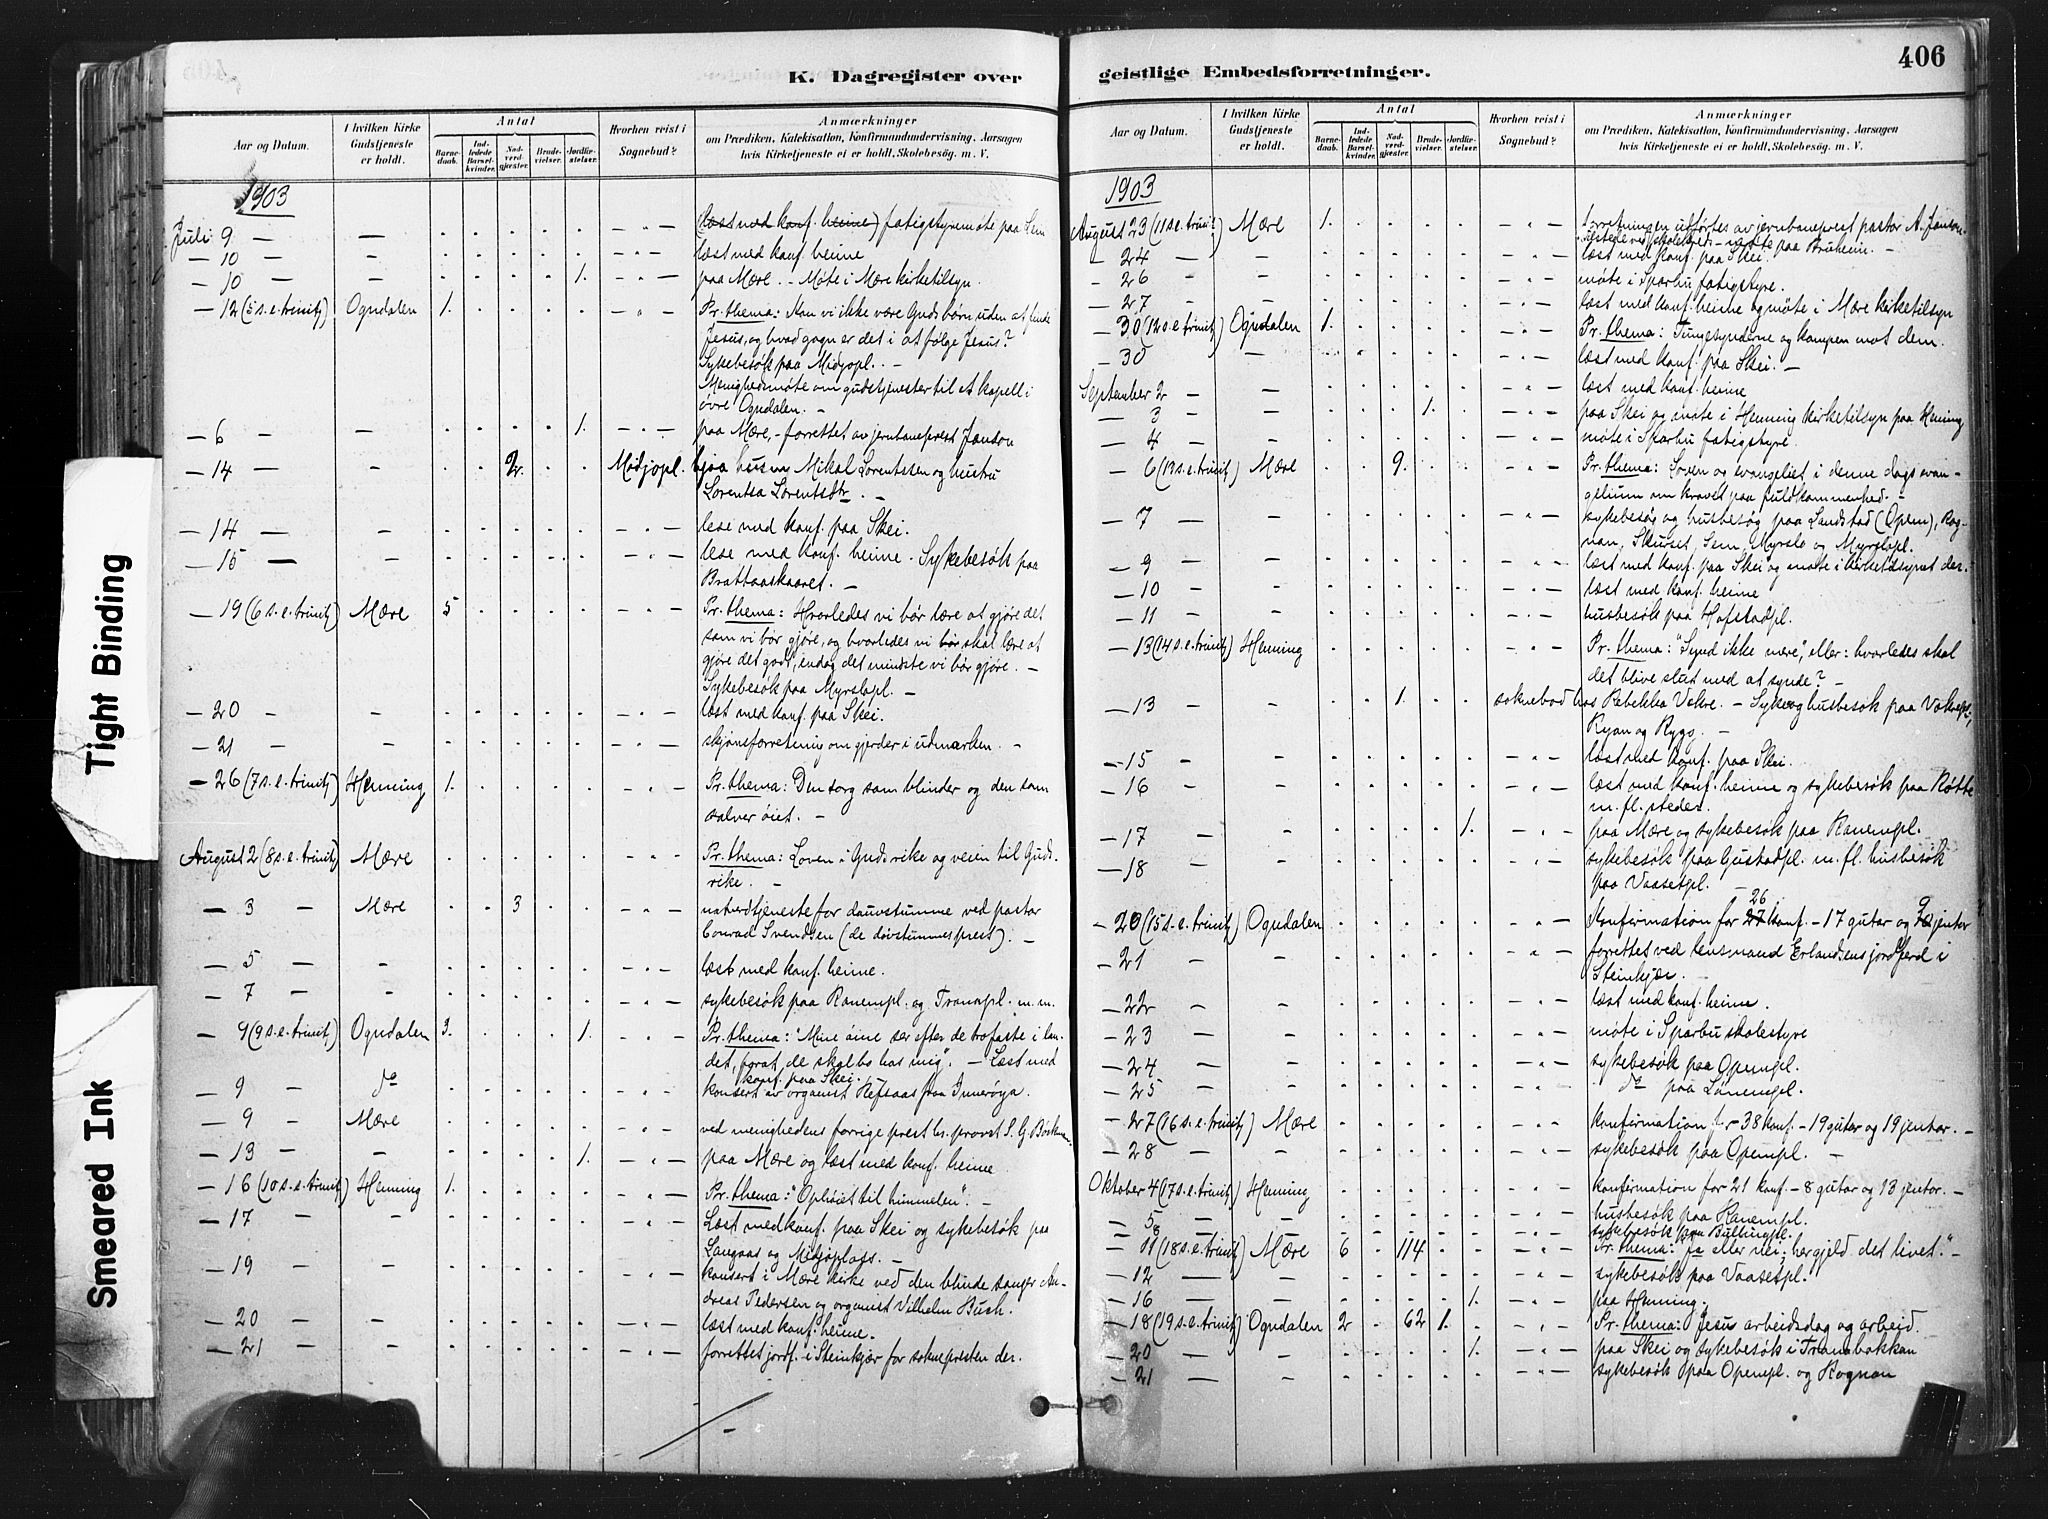 406
K. Dagregister over geistlige Embedsforretninger.
Aar og Datum.
I hvilken Kirke Gudstjeneste er holdt.
Antal
Barnedaab.
Indledede Barselkvinder.
Nadverdgjester.
Brudevielser.
Jordfæstelser.
Hvorhen reist i Sognebud?
Anmærkninger
om Prædiken, Katekisation, Konfirmandundervisning, Aarsagen
hvis Kirketjeneste ei er holdt, Skolebesög. m. V.
1903
Juli 9 — — (læst med konf. heime) fatigstyremøte paa Sem
— 10 — læst med konf. heime
— 10 — 1. paa Mære. – Møte i Mære kirketilsyn.
— 12 (5 s. e. trinit) Ogndalen 1. Pr. thema: Kan vi ikke være Guds börn uden at kjende
Jesus, og hvad gagn er det i at følge Jesus?
Sykebesök paa Midjopl. –
Menighedsmöte om gudstjenester til et kapell i
övre Ogndalen. –
— 6 — — 1. paa Mære, – forrettet av jernbaneprest Janson
— 14 — — 2. Midjopl. hjaa husm. Mikal Lorentssen og hustru
Lorentsa Lorentsdtr. –
— 14 — læse med konf. paa Skei.
— 15 — læse med konf. heime. Sykebesök paa
Brattaaskaaret. –
— 19 (6 s. e. trinit) Mære 5 Pr. thema: Hvorledes vi bør lære at gjöre det
som vi bør gjöre, og hvorledes vi bør skal lære at
gjöre det godt, endog det mindste vi bør gjöre. –
Sykebesök paa Myrslopl. –
— 20 - læst med konf. paa Skei.
— 21 - skjönsforretning om gjerder i udmarken. –
— 26 (7 s. e. trinit) Henning 1. Pr. thema: Den sorg som blinder og den som
salver öiet. –
August 2 (8 s. e. trinit) Mære Pr. thema: Loven i Guds rike og veien til Guds
rike. –
— 3 — Mære 3 natverdtjeneste for dauvstumme ved pastor
Conrad Svendsen (de dövstummes prest). –
— 5 — læst med konf. heime.
— 7 — sykebesök paa Ranempl. og Tranapl. m. m.
— 9 (9 s. e. trinit) Ogndalen 3. 1. Pr. thema: "Mine öine ser efter de trofaste i lan-
det, forat de skal bo hos mig". – Læst med
konf. paa Skei.
— 9 — do konsert av organist Refsaas fra Inneröya.
— 9 — Mære ved menighedens forrige prest hr. provst S. G. Bockman.
— 13 — 1. paa Mære og læst med konf. heime.
— 16 (10 s. e. trinit) Henning 1. Pr. thema: "Ophöiet til himmelen". –
— 17 — Læst med konf. paa Skei og sykebesök paa
Langaas og Midjoplads. –
— 19 konsert i Mære kirke ved den blinde sanger An-
dreas Pedersen og organist Vilhelm Bush.
— 20 — læst med konf. heime.
— 21 — forrettet jordf. i Steinkjær for sokneprestten der.
Aar og Datum.
I hvilken Kirke Gudstjeneste er holdt.
Antal
Barnedaab.
Indledede Barselkvinder.
Nadverdgjester.
Brudevielser.
Jordfæstelser.
Hvorhen reist i Sognebud?
Anmærkninger
om Prædiken, Katekisation, Konfirmandundervisning, Aarsagen
hvis Kirketjeneste ei er holdt, Skolebesög. m. V.
1903
August 23 (11 s. e. trinit) Mære 1. Forretningen utførtes av jernbaneprest pastor A. Janson.
tilstede ved skolekreds-møte paa Bruheim. –
— 24 — læst med konf. paa Skei.
— 26 møte i Sparbu fatigstyre.
— 27 læst med konf. heime og møte i Mære kirketilsyn
— 30 (12 s. e. trinit) Ogndalen 1. Pr. thema: Tungesynderne og kampen mot dem.
— 30 — læst med konf. paa Skei. –
September 2 — læst med konf. heime
— 3 1. paa Skei og møte i Henning kirketilsyn paa Henning
— 4 møte i Sparbu fatigstyre.
— 6 (13 s. e. trinit) Mære 9. Pr. thema: Loven og evangeliet i denne dags evan-
gelium om kravet paa fuldkommenhed. –
— 7 — sykebesøg og husbesøg paa Landstad (Opem), Rog-
nan, Skurset, Sem, Myrslo og Myrslopl.
— 9 læst med konf. paa Skei og møte i kirketilsynet der.
— 10 læst med konf. heime
— 11 husbesök paa Hofstadpl.
— 13 (14 s. e. trinit) Henning Pr. thema: "Synd ikke mere", eller: hvorledes skal
det blive slut med at synde? –
— 13 1. soknebud hos Rebekka Vekre. – Syke og husbesök paa Vekrepl.,
Ryan og Rygg. –
— 15 læst med konf. paa Skei.
— 16 læst med konf. heime og sykebesök paa Røtte
m. fl. steder.
— 17 — 1. paa Mære og sykebesök paa Ranempl.
— 18 sykebesök paa Gustadpl. m. fl. husbesök
paa Vaasetpl. –
— 20 (15 s. e. trinit) Ogndalen Konfirmation for 27 26 konf. – 17 gutar og 9 jentor
— 21 — forrettet ved lensmand Erlandsens jordferd i
Steinkjær. –
— 22 læst med konf. heime.
— 23 møte i Sparbu skolestyre
— 24 sykebesök paa Opempl.
— 25 do paa Lönempl.
— 27 (16 s. e. trinit) Mære konfirmation for 38 konf. – 19 gutar og 19 jentor. –
— 28 sykebesök paa Opempl. –
Oktober 4 (17 s. e. trinit) Henning konfirmation for 21 konf. – 8 gutar og 13 jentor. –
— 5 — husbesök paa Ranempl.
8 sykebesök paa
— 11 (18 s. e. trinit) Mære 6 114 Pr. thema: "Ja eller nei; her gjeld det livet." –
— 12 — sykebesök paa Vaasetpl.
— 16 — 1. paa Henning.
— 18 (19 s. e. trinit) Ogndalen 2 62 1. Pr. thema: Jesus arbeidsdag og arbeid.
— 20 — 1. paa Skei og sykebesök i Tranabakkan
— 21 sykebesök paa Opempl. og Rognan
Tight Binding
Smeared Ink